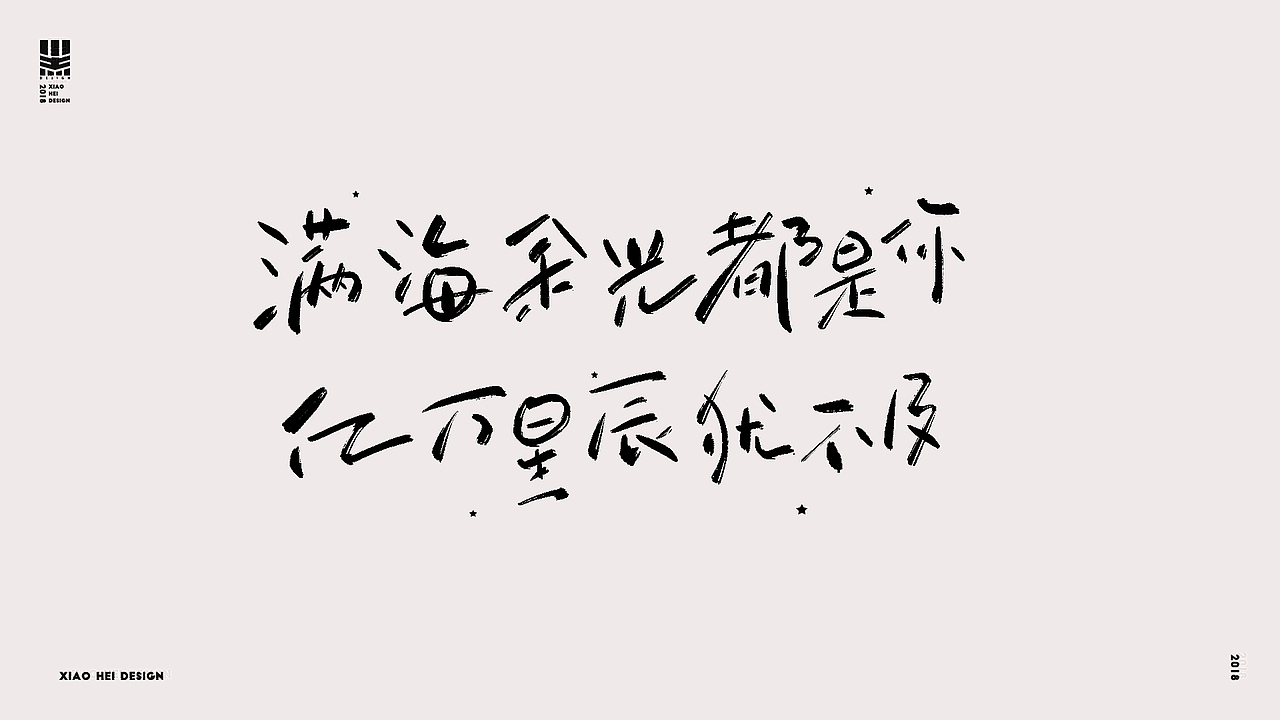 DESIGN
2018
XIAO
HEI
DESIGN
满海余光都是你
亿万星辰犹不及
XIAO HEI DESIGN
2018